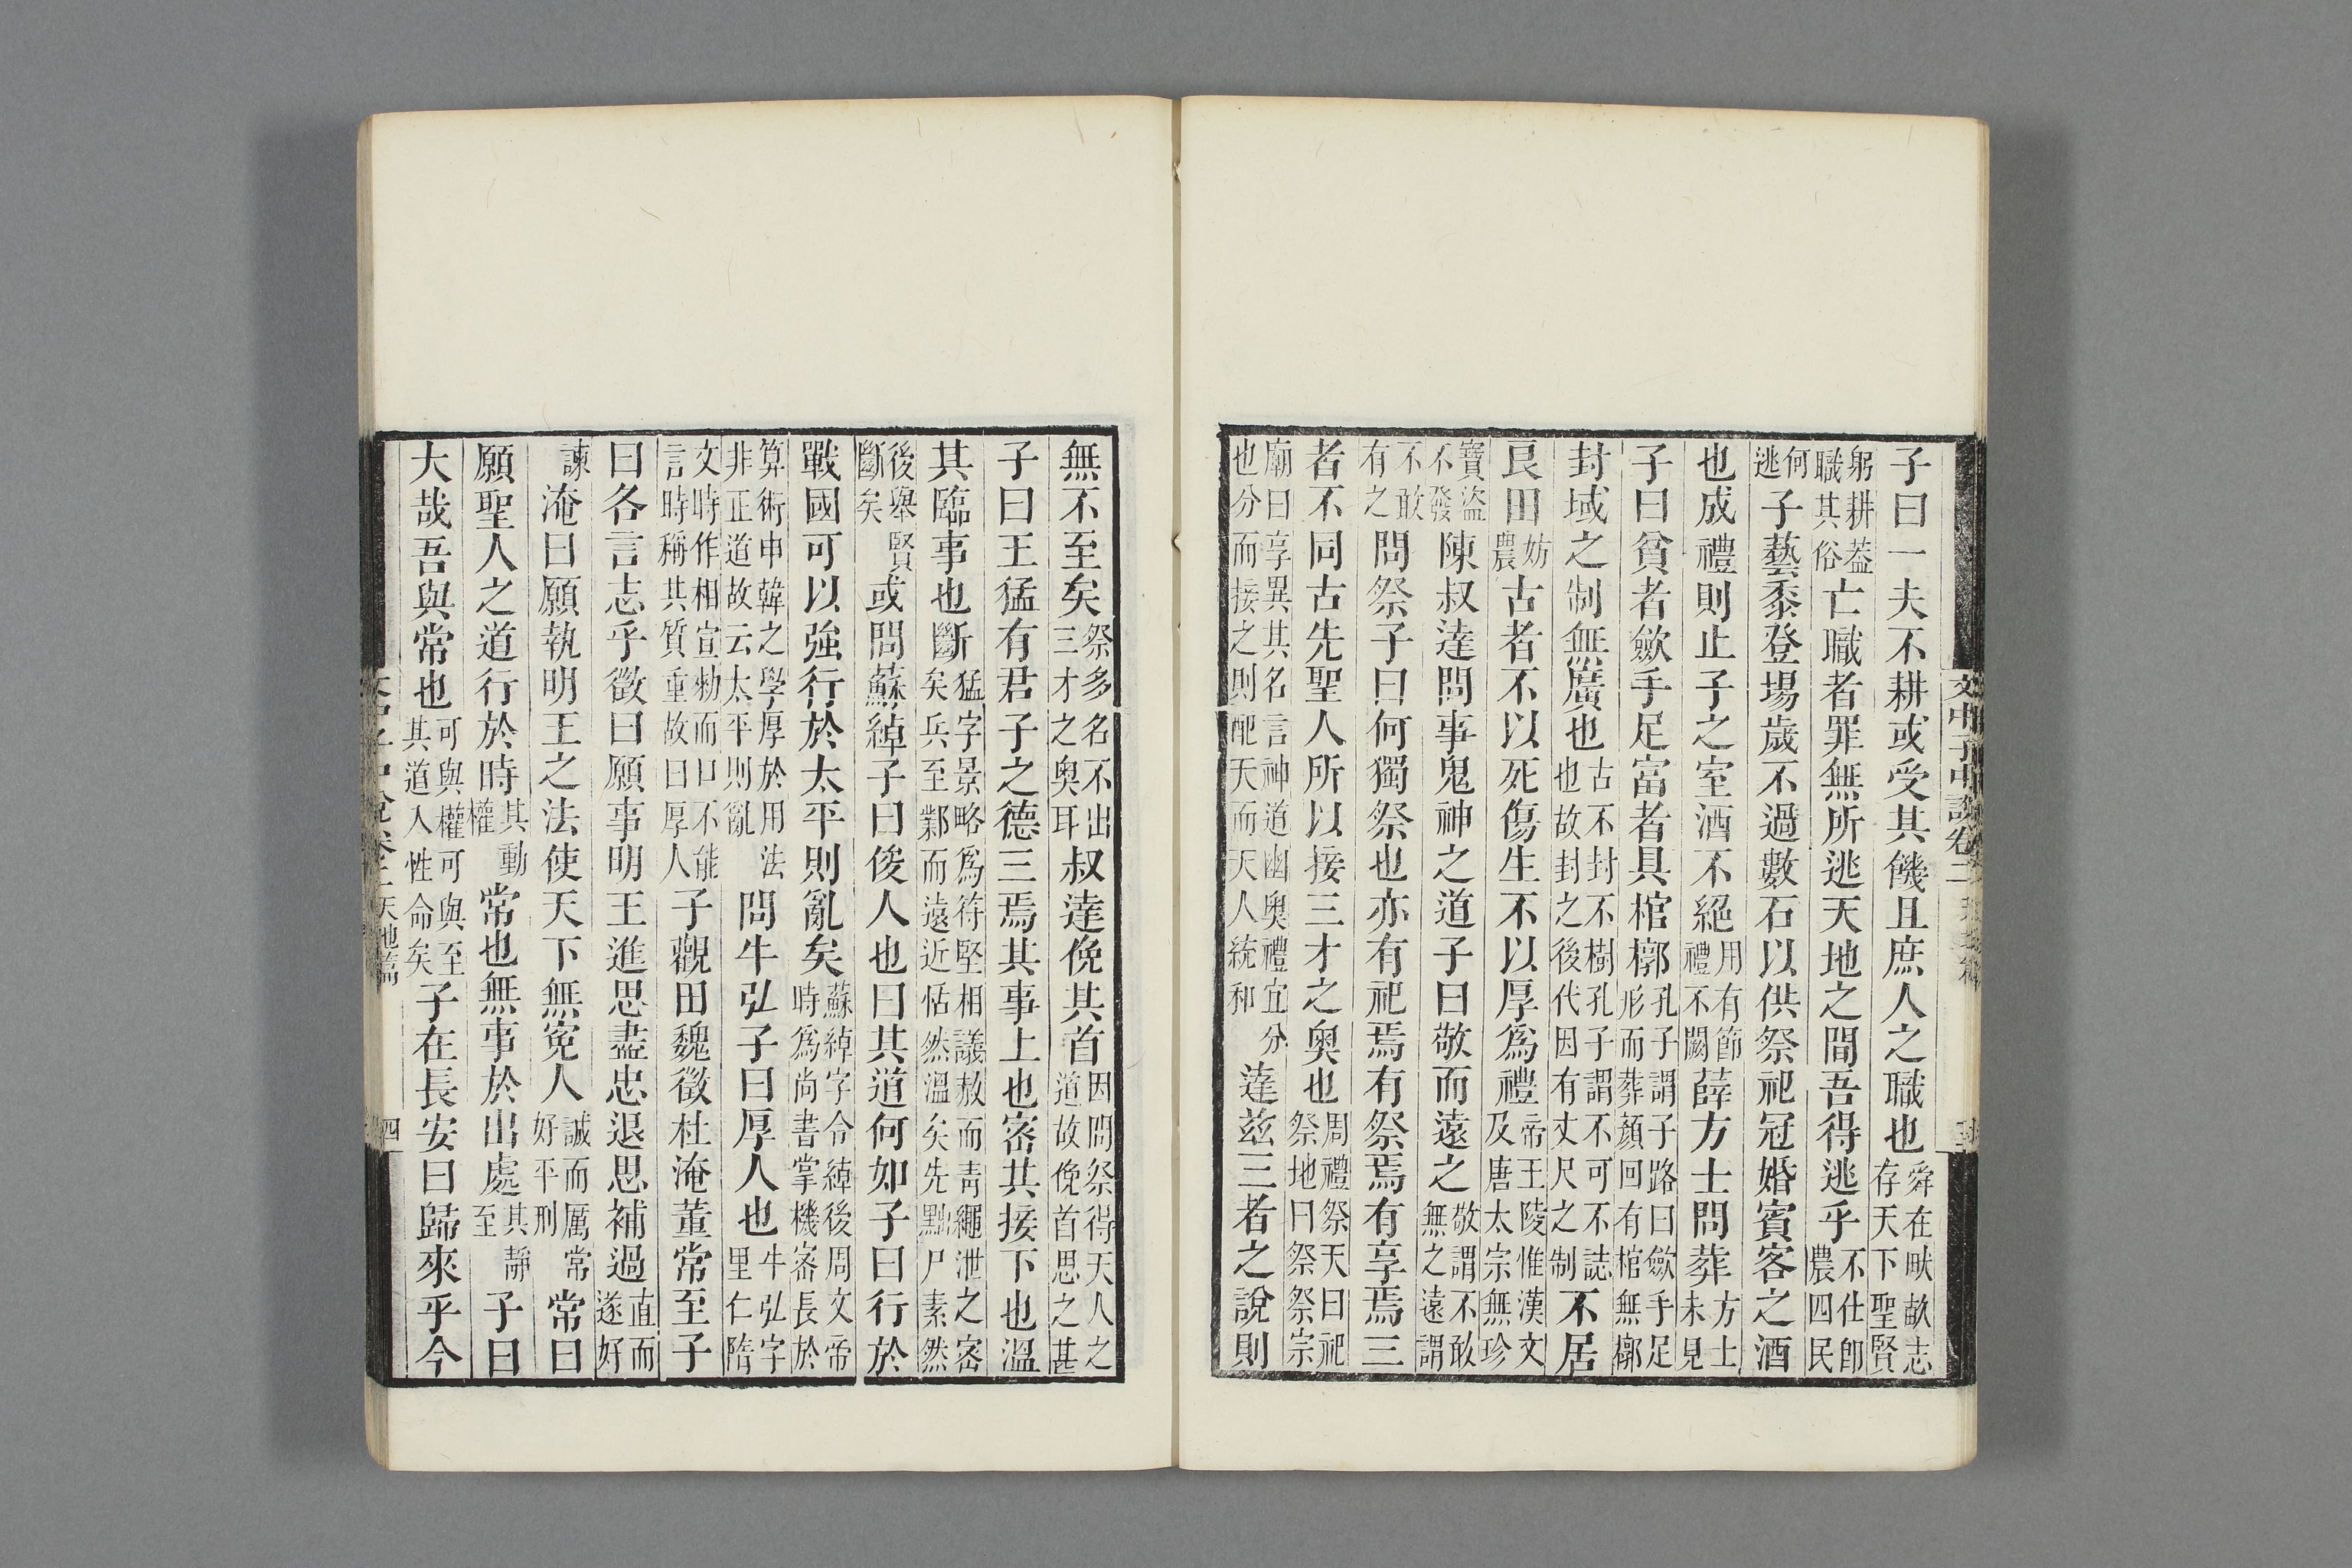 子曰一夫不耕或受其饑且庶人之職也舜在畎畝志存天下聖賢
躬耕蓋職其俗亡職者罪無所逃天地之間吾得逃乎不仕卽農四民
何逃子藝黍登場歲不過數石以供祭祀冠婚賓客之酒
也成禮則止子之室酒不絕用有節禮不闕薛方士問葬方士未見
子曰貧者斂手足富者具棺槨孔子謂子路曰斂手足形而葬顏回有棺無槨
封域之制無廣也古不封不樹孔子謂不可不誌也故封之後代因有丈尺之制不居
良田妨農古者不以死傷生不以厚爲禮帝王陵惟漢文及唐太宗無珍
寶盜不發陳叔達問事鬼神之道子曰敬而遠之敬謂不敢無之遠謂
不敢有之問祭子曰何獨祭也亦有祀焉有祭焉有享焉三
者不同古先聖人所以接三才之奧也周禮祭天曰祀祭地曰祭祭宗
廟曰享異其名言神道幽奧禮宜分也分而接之則配天而天人統和達茲三者之說則
無不至矣祭多名不出三才之奧耳叔達俛其首因問祭得天人之道故俛首思之甚
子曰王猛有君子之德三焉其事上也密其接下也溫
其臨事也斷猛字景略爲符堅相議赦而靑繩泄之密矣兵至鄴而遠近恬然溫矣先黜尸素然
後舉賢斷矣或問蘇綽子曰俊人也曰其道何如子曰行於
戰國可以強行於太平則亂矣蘇綽字令綽後周文帝時爲尚書掌機密長於
算術申韓之學厚於用法非正道故云太平則亂問牛弘子曰厚人也牛弘字里仁隋
文時作相宣勑而口不能言時稱其質重故曰厚人子觀田魏徵杜淹董常至子
曰各言志乎徵曰願事明王進思盡忠退思補過直而遂好
諫淹曰願執明王之法使天下無寃人誠而厲常好平刑常曰
願聖人之道行於時其動權常也無事於出處其靜至子曰
大哉吾與常也可與權可與至其道入性命矣子在長安曰歸來乎今
文中子中說卷二
天地篇
四